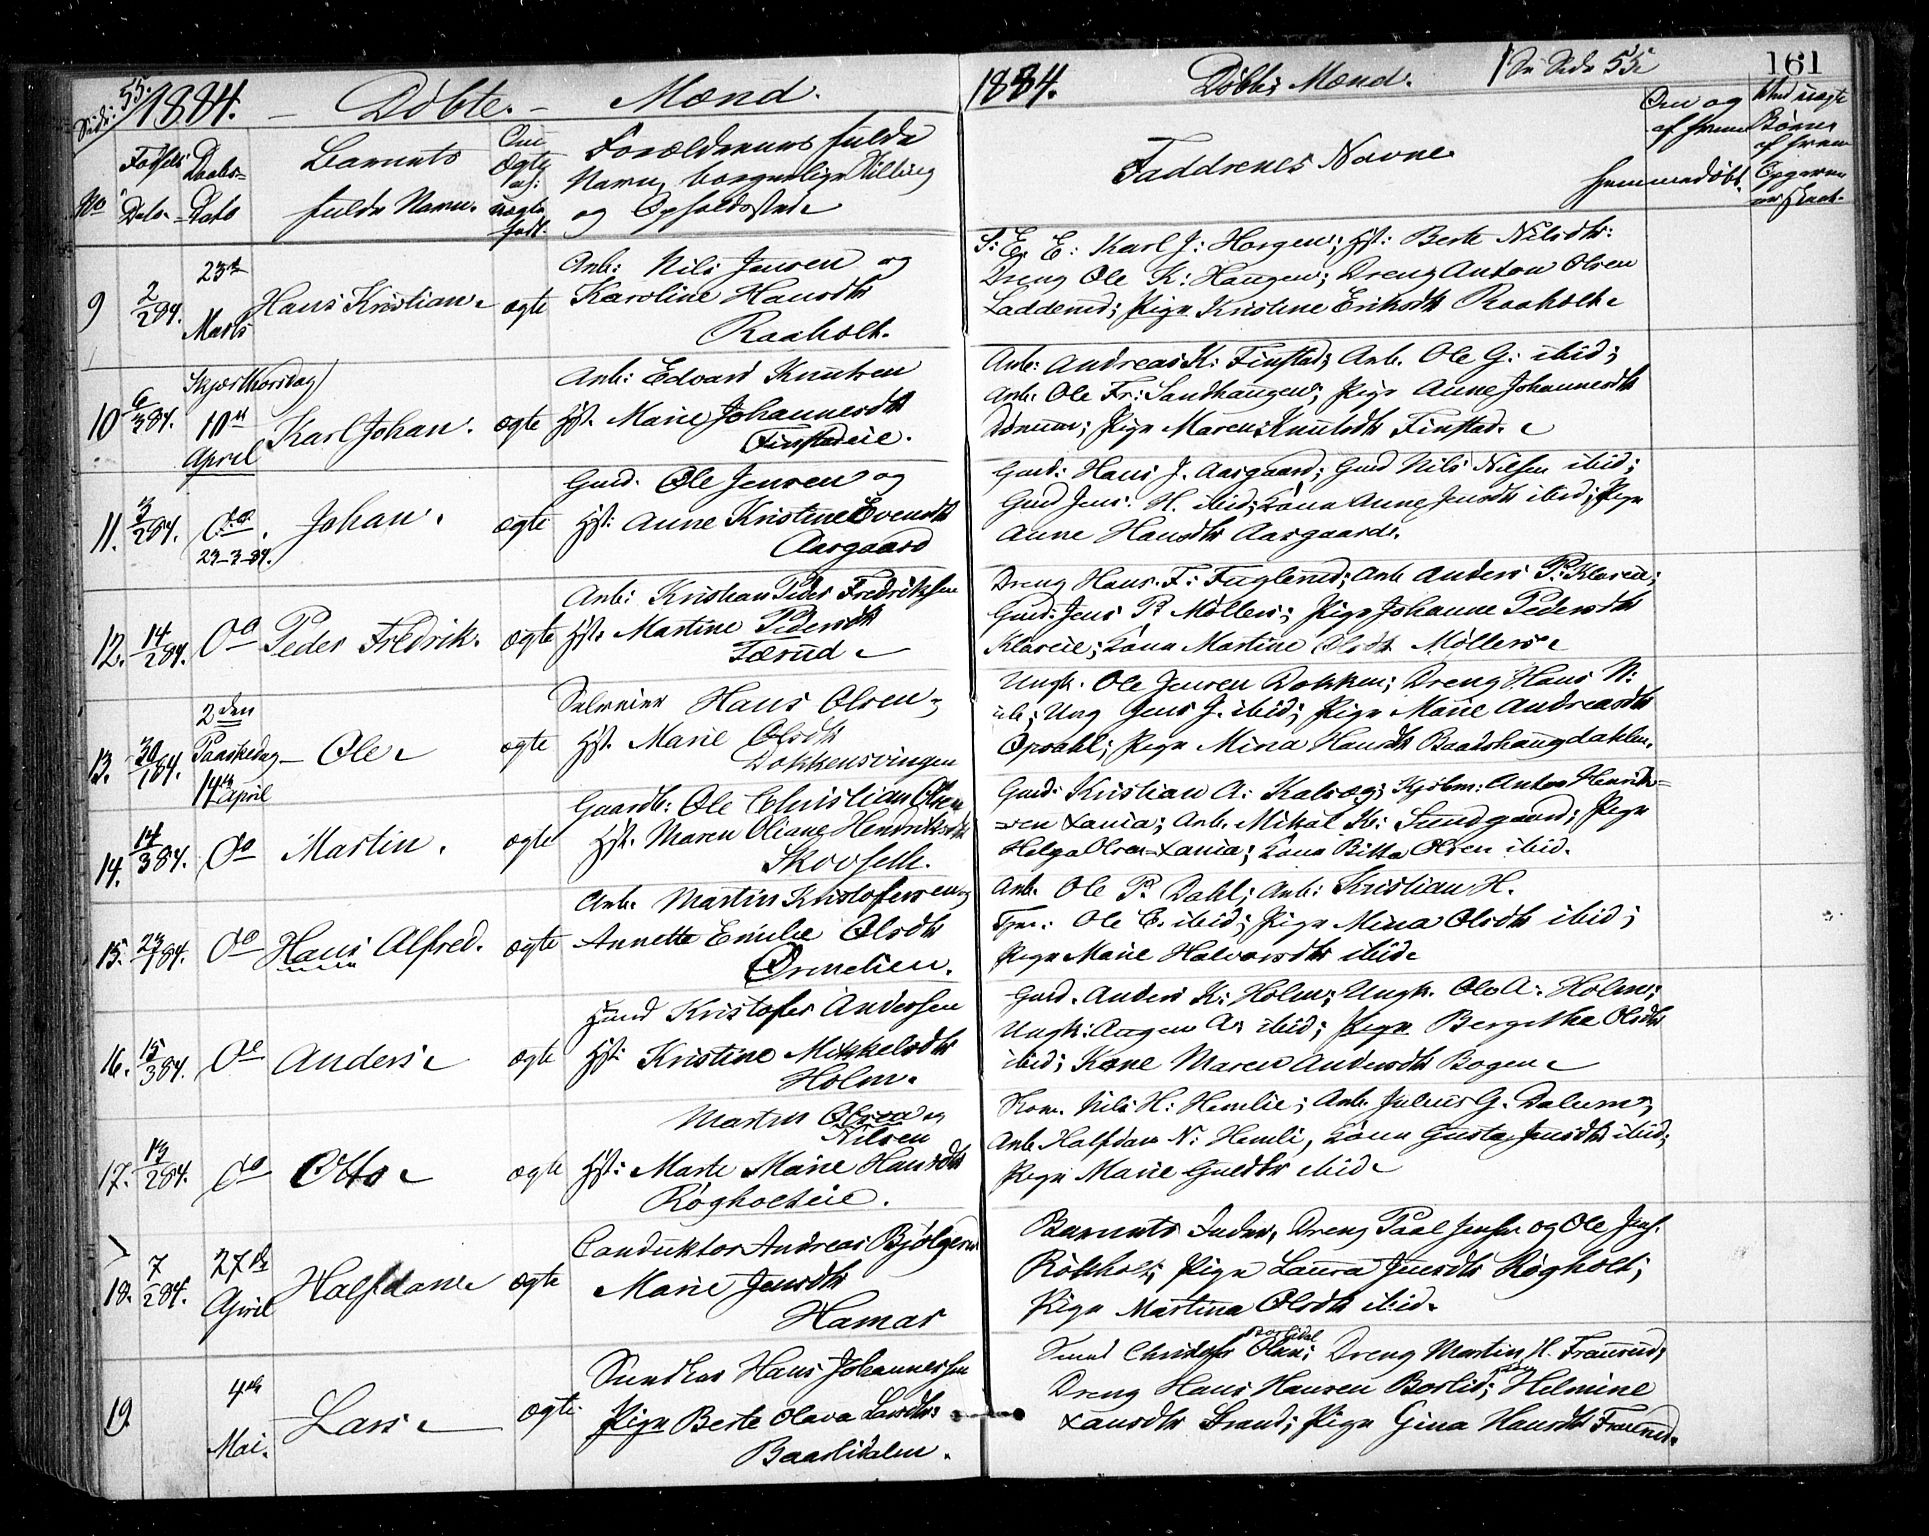 Side: 55. 1884. – Døbte. – Mænd.
No
Fødsels Dato
Daabs- Dato
Barnets fulde Navn.
Om Ægte el. uægte født.
Forældrenes fulde
Navn, borgerlige Stilling
og Opholdssted
9
2/2 84.
23de Marts
Hans Kristian
ægte
Arb: Nils Jensen og
Karoline Hansdtr
Raaholt.
10
6/3 84.
Skjærthorsdag
10de April
Karl Johan.
ægte
Arb: Edvard Knutsen
Hst. Marie Johannesdtr
Finstadeie.
11.
3/2 84.
do.
23-3-84.
Johan.
ægte
Gmd. Ole Jensen og
Hst: Anne Kristine Evensdtr
Aasgaard
12.
14/2 84.
do
Peder Fredrik.
ægte
Arb: Kristian Peder Fredriksen
Hst. Martine Pedersdtr
Lærud
13.
30/1 84.
2den Paaskedag
14de April
Ole
ægte
Selveier Hans Olsen
Hst. Marie Olsdtr
Dokkensvingen
14.
14/3 84.
do
Martin.
ægte
Gaardb: Ole Christian Olsen
Hst. Maren Oliane Henriksdtr
Skovseth.
15.
23/1 84.
do
Hans Alfred.
ægte
Arb. Martin Kristofersen og
Annette Emilie Olsdtr
Ørnelien.
16.
15/3 84.
do
Anders
ægte
Kristofer Andersen
Hst: Kristine Mikkelsdtr
Holm.
17.
13/2 84.
do
Otto
ægte
Martin Olsen og
Nilsen
Hst: Marte Marie Hansdtr
Røgholteie.
18.
7/2 84.
27de April
Halfdan
ægte
Conduktør Andreas Bjølgerud
Marie Jensdtr
Hamar
19
4de Mai.
Lars
ægte.
Sundkar Hans Johannessen
Pige Berte Olava Larsdtr:
Baarlidalen.
1884. Døbte Mænd. Se Side 55 161
Faddrenes Navne
Om og af hvem hjemmedøbt.
S: E. E: Karl J: Horgen; Hst: Berte Nilsdtr:
Dreng Ole K: Haugen; Dreng Anton Olsen
Ladderud; Pige Kristine Eriksdtr Raaholt
Arb: Andreas K: Finstad; Arb. Ole G: ibid;
Arb. Ole Fr: Sandhaugen; Pige Anne Johannesdtr
Dønnum; Pige Maren Knutsdtr Finstad.
Gmd: Hans J. Aasgaard; Gmd Nils Nilsen ibid;
Gmd Jens. H. ibid; Kone Anne Jensdtr ibid; Pige
Anne Hansdtr Aasgaard.
Dreng Hans. F: Fuglerud; Arb Anders P: Klareie;
Gmd: Jens P: Møller; Pige Johanne Pedersdtr
Klareie; Kone Martine Olsdt Møller
Ungk. Ole Jensen Dokken; Dreng Hans N:
ib; Ung Jens J. ibid; Pige Marie Andreasdtr
Opsahl; Pige Mina Hansdtr Baadshaugdahlen.
Gmd: Kristian A: Kalseg; Kjøbm: Anton Henrik-
-sen Xania; Arb. Mikal K: Sundgaard; Pige
Helga Olsen Xania; Kone Bitta Olsen ibid.
Arb. Ole P: Dahl; Arb: Kristian H.
Tjen: Ole C. ibid; Pige Mina Olsdtr ibid;
Pige Marie Halvorsdtr ibid
Gmd. Anders K: Holm; Ungk. Ole A: Holm;
Ungk: Augen A: ibid; Pige Bergithe Olsdtr
ibid; Kone Maren Andersdtr Bogen
Nils H: Hemlie; Arb. Julius G. Dalum
Arb Halfdan N: Hemli, Kone Gusta Jensdtr ibid;
Pige Marie ibid
Barnets Fader, Dreng Paal Jensen og Ole Jens.
Røkholt; Pige Laura Jensdtr Røgholt;
Pige Martina Olsdtr ibid.
Smed Christofer Olsen; Dreng Martin H. Traurud;
Dreng Hans Hansen Borlid; Helmine
Strand; Pige Gina Hansdtr Traurud.